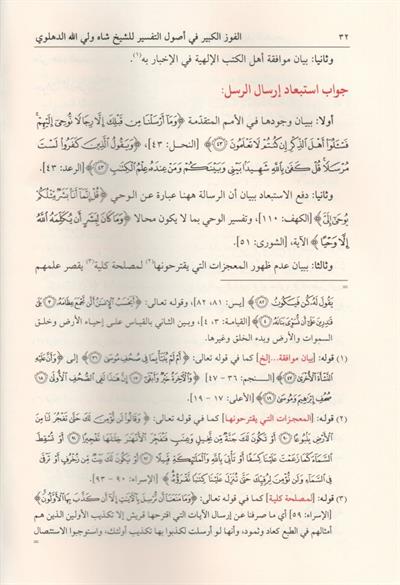 ٣٢ الفوز الكبير في أصول التفسير للشيخ شاه ولي الله الدهلوي
وثانيا: بيان موافقة أهل الكتب الإلهية في الإخبار به(١).
جواب استبعاد إرسال الرسل:
أولا: ببيان وجودها في الأمم المتقدّمة ﴿وَمَآ أَرْسَلْنَا مِن قَبْلِكَ إِلَّا رِجَالًا نُّوحِيٓ إِلَيْهِمْ
فَسْـَٔلُوٓا۟ أَهْلَ ٱلذِّكْرِ إِن كُنتُمْ لَا تَعْلَمُونَ ٤٣﴾ [النحل: ٤٣]، ﴿وَيَقُولُ ٱلَّذِينَ كَفَرُوا۟ لَسْتَ
مُرْسَلًا قُلْ كَفَىٰ بِٱللَّهِ شَهِيدًۢا بَيْنِي وَبَيْنَكُمْ وَمَنْ عِندَهُۥ عِلْمُ ٱلْكِتَٰبِ ٤٣﴾ [الرعد: ٤٣].
وثانيا: دفع الاستبعاد ببيان أن الرسالة ههنا عبارة عن الوحي ﴿قُلْ إِنَّمَآ أَنَا۠ بَشَرٌ مِّثْلُكُمْ
يُوحَىٰٓ إِلَيَّ﴾ [الكهف: ١١٠]، وتفسير الوحي بما لا يكون محالا ﴿وَمَا كَانَ لِبَشَرٍ أَن يُكَلِّمَهُ ٱللَّهُ
إِلَّا وَحْيًا﴾ الآية، [الشورى: ٥١].
وثالثا: ببيان عدم ظهور المعجزات التي يقترحونها(٢) لمصلحة كلية(٣) يقصر علمهم
=
يَقُولَ لَهُۥ كُن فَيَكُونُ ٨٢﴾ [يس: ٨١، ٨٢]، وقوله تعالى: ﴿أَيَحْسَبُ ٱلْإِنسَٰنُ أَلَّن نَّجْمَعَ عِظَامَهُۥ ٣ بَلَىٰ
قَٰدِرِينَ عَلَىٰٓ أَن نُّسَوِّيَ بَنَانَهُۥ ٤﴾ [القيامة: ٣، ٤]، وبين الثاني بالقياس على إحياء الأرض وخلق
السموات والأرض وبدء الخلق وغيرها.
(١) قوله: [بيان موافقة...إلخ] كما في قوله تعالى: ﴿أَمْ لَمْ يُنَبَّأْ بِمَا فِي صُحُفِ مُوسَىٰ ٣٦﴾ إلى ﴿وَأَنَّ عَلَيْهِ
ٱلنَّشْأَةَ ٱلْأُخْرَىٰ ٤٧﴾ [النجم: ٣٦ - ٤٧] ﴿وَٱلْآخِرَةُ خَيْرٌ وَأَبْقَىٰٓ ١٧ إِنَّ هَٰذَا لَفِي ٱلصُّحُفِ ٱلْأُولَىٰ ١٨
صُحُفِ إِبْرَٰهِيمَ وَمُوسَىٰ ١٩﴾ [الأعلى: ١٧ - ١٩].
(٢) قوله: [المعجزات التي يقترحونها] كما في قوله تعالى: ﴿وَقَالُوا۟ لَن نُّؤْمِنَ لَكَ حَتَّىٰ تَفْجُرَ لَنَا مِنَ
ٱلْأَرْضِ يَنۢبُوعًا ٩٠ أَوْ تَكُونَ لَكَ جَنَّةٌ مِّن نَّخِيلٍ وَعِنَبٍ فَتُفَجِّرَ ٱلْأَنْهَٰرَ خِلَٰلَهَا تَفْجِيرًا ٩١ أَوْ تُسْقِطَ
ٱلسَّمَآءَ كَمَا زَعَمْتَ عَلَيْنَا كِسَفًا أَوْ تَأْتِيَ بِٱللَّهِ وَٱلْمَلَٰٓئِكَةِ قَبِيلًا ٩٢ أَوْ يَكُونَ لَكَ بَيْتٌ مِّن زُخْرُفٍ أَوْ تَرْقَىٰ
فِي ٱلسَّمَآءِ وَلَن نُّؤْمِنَ لِرُقِيِّكَ حَتَّىٰ تُنَزِّلَ عَلَيْنَا كِتَٰبًا نَّقْرَؤُهُۥ﴾ [الإسراء: ٩٠ - ٩٣].
(٣) قوله: [لمصلحة كلية] كما في قوله تعالى: ﴿وَمَا مَنَعَنَآ أَن نُّرْسِلَ بِٱلْآيَٰتِ إِلَّآ أَن كَذَّبَ بِهَا ٱلْأَوَّلُونَ﴾
[الإسراء: ٥٩] أي ما صرفنا عن إرسال الآيات التي اقترحها قريش إلا تكذيب الأولين الذين هم
أمثالهم في الطبع كعاد وثمود، وأنها لو أرسلت لكذبوا بها تكذيب أولئك، واستوجبوا الاستئصال
=